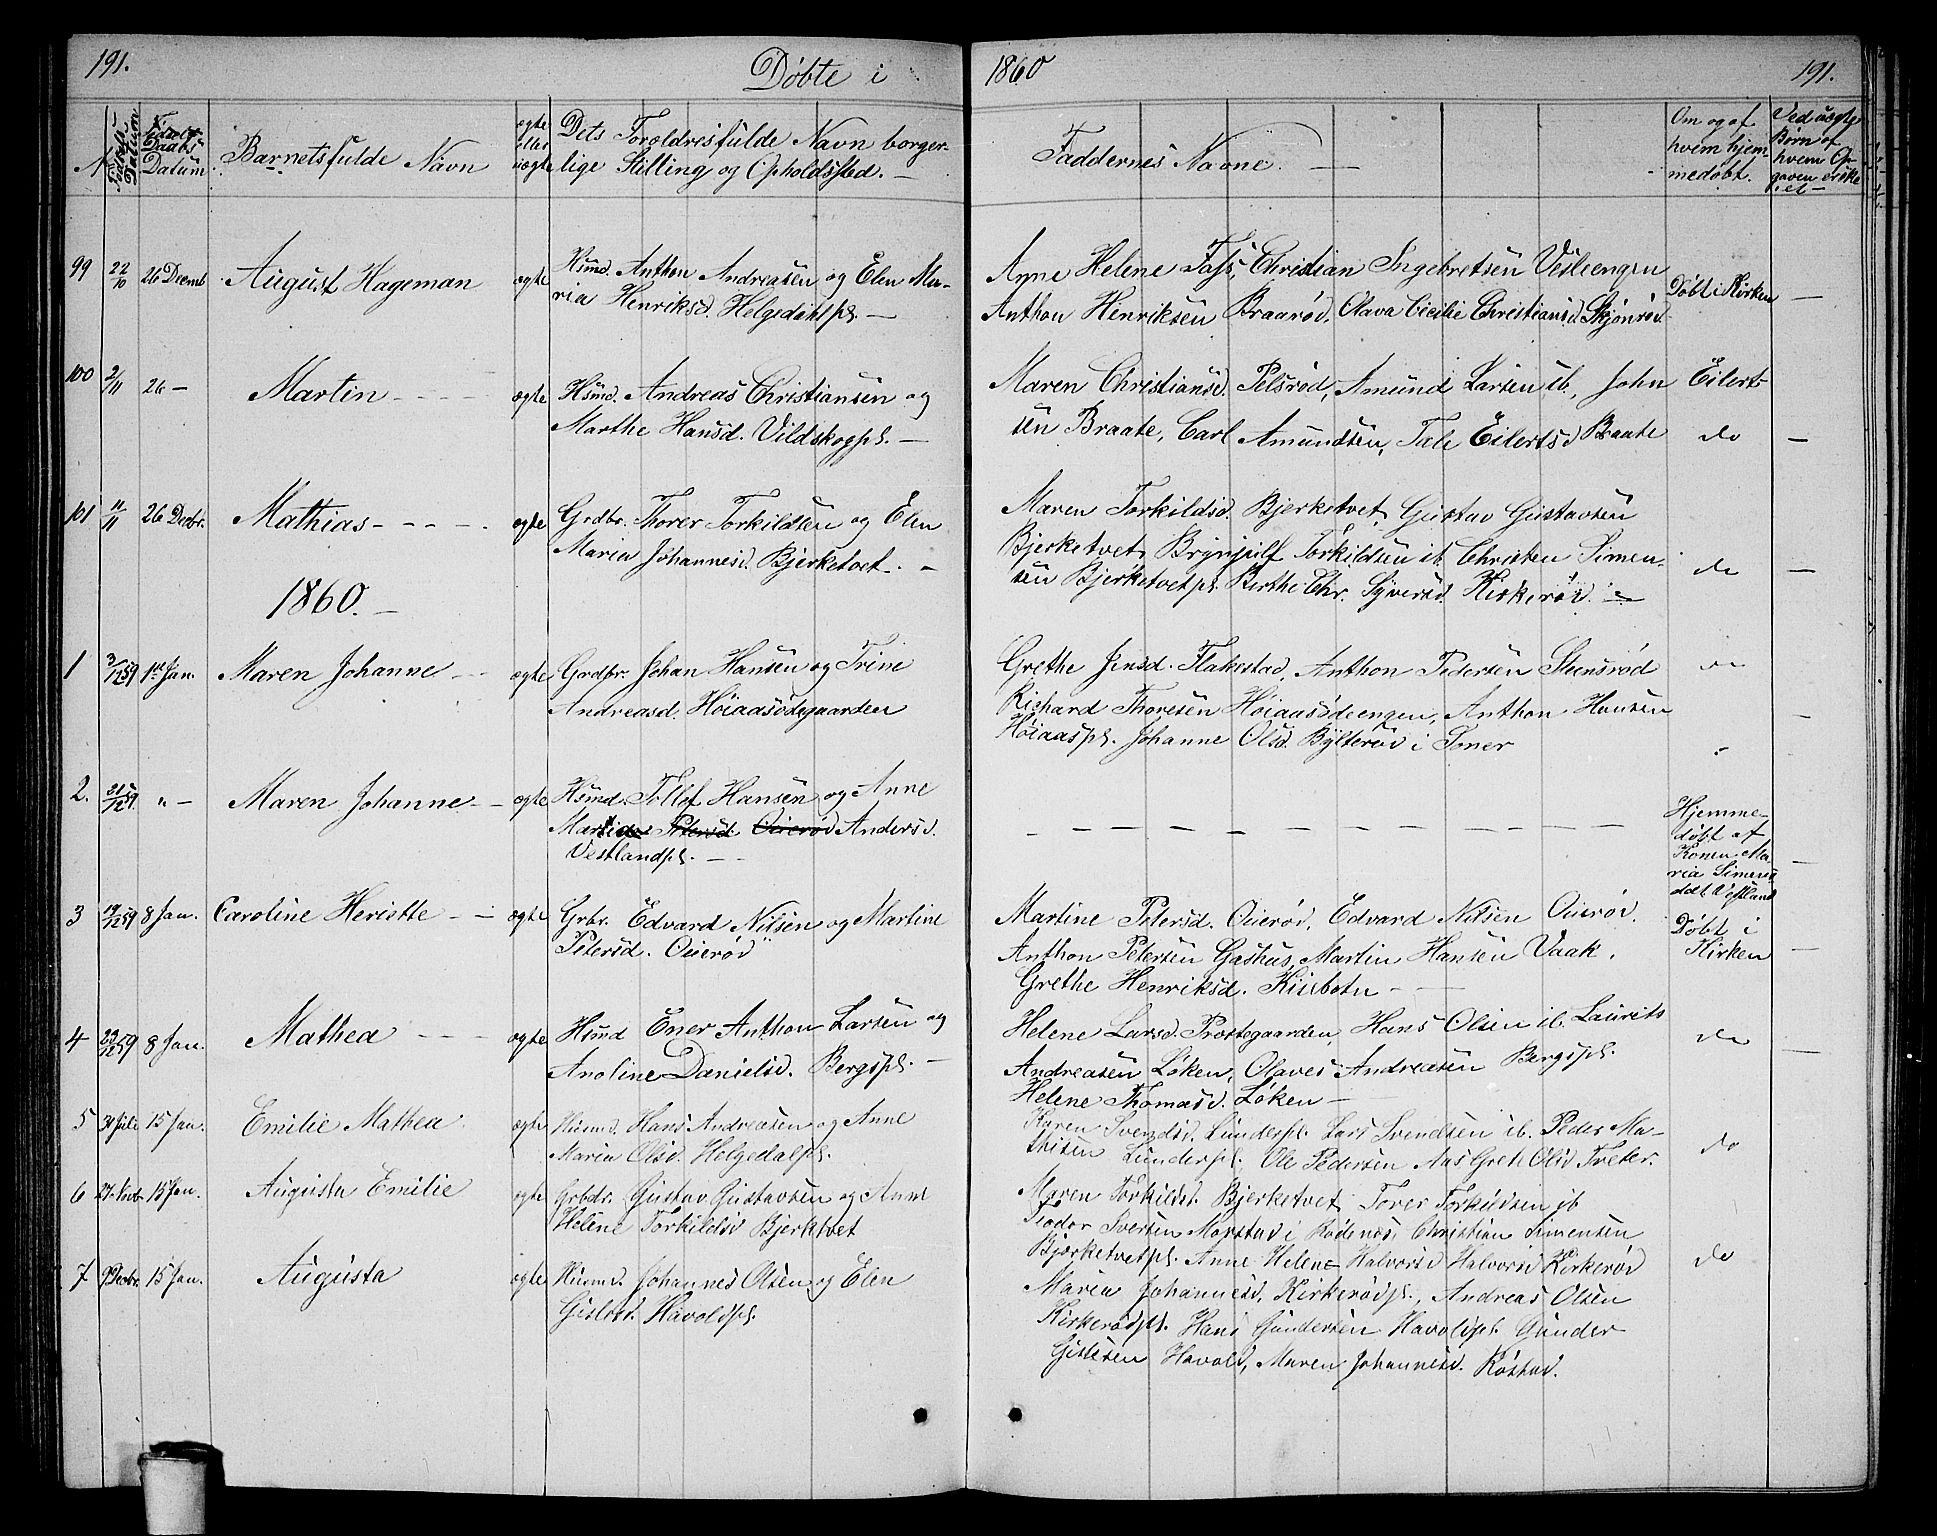 191.
Døbte i
1860
191.
N
Fødsels Datum
Daabs Datum
Barnets fulde Navn
ægte eller uægte
Dets Forældres fulde Navn borger-
lige Stilling og Opholdssted. -
Faddernes Navne. -
Om og af
hvem hjem-
medøbt.
Ved uægte
Børn af
hvem Op-
gaven er ske
et -
99 22/10 26 Decemb August Hageman ægte Husmd. Anthon Andreasen og Elen Ma-
ria Henriksd. Helgedahlpl. -
Anne Helene Foss, Christian Ingebretsen Vesleengen
Anthon Henriksen Braarød, Olava Cecilie Christiansd. Skjønrød.
Døbt i Kirken -
100 2/11 26 - Martin - - - - ægte Husmd. Andreas Christiansen og
Marthe Hansd. Vildskogpl. -
Maren Christiansd. Pelsrød, Amund Larsen ib., John Eilert-
sen Braate, Carl Amundsen, Tale Eilertsd Braate
do -
101 11/11 26 Decbr. Mathias - - - - ægte Grdbr. Thorer Torkildsen og Elen
Maria Johannesd. Bjerketvet. -
Maren Torkildsd. Bjerketvet, Gustav Gustavsen
Bjerketvet, Brynjulf Torkildsen ib. Christen Simen-
sen Bjerketvetpl. Berthe Chr. Syversd. Kirkerød. -
do -
1860. -
1 3/12 59 1ste Jan. Maren Johanne - - ægte Grdbr. Johan Hansen og Trine
Andreasd. Høiaasødegaarden
Grethe Jensd. Flakestad, Anthon Pedersen Steensrød
Richard Thoresen Høiaasødeengen, Anthon Hansen
Høiaaspl. Johanne Olsd. Bylterød i Soner
do -
2. 21/12 59. " - Maren Johanne - - ægte Husmd. Tollef Hansen og Anne
Martine Petersd. Ouerød Andersd.
Vestlandpl. - -
- - - - - - - - - - - - - -
Hjemme-
døbt af
Konen Ma-
ria Simens
datt Vestland
-
3 19/12 59 8 Jan. Caroline Heriette - - ægte Grbr. Edvard Nilsen og Martine
Petersd. Ouerød
Martine Petersd. Ouerød, Edvard Nilsen Ouerød.
Anthon Petersen Gashus, Martin Hansen Vaak,
Grethe Henriksd. Kinbotn - -
Døbt i
Kirken -
4 23/12 59 8 Jan. Mathea - - - ægte Husmd Ener Anthon Larsen og
Anoline Danielsd. Bergspl. -
Helene Larsd. Prostegaarden, Hans Olsen ib. Laurits
Andreasen Løken, Olaves Andreasen Bergspl.
Helene Thomasd. Løken -
do -
5 31 Juli 15 Jan. Emilie Mathea ægte Husmd. Hans Andreasen og Anne
Maria Olsd. Helgedalpl.
Karen Svendsd. Lunderpl. Lars Svendsen ib. Peder Ma-
thisen Lunderpl. Ole Pedersen Aas Greth Olsd Træter.
do
6 27 Novbr 15 Jan. Augusta Emilie ægte Grbdr. Gustav Gustavsen og Anne
Helene Torkildsd Bjerktvet
Maren Torkildsd. Bjerketvet, Torer Torkildsen ib
Teodor Svertsen Morstad i Rødenæs, Christian Simensen
Bjerketvetpl. Anne Helene Halvorsd Halvorsd Kirkerød
do
7 9 Decbr. 15 Jan. Augusta ægte Husmd. Johannes Olsen og Elen
Gislesd. Havoldpl.
Maria Johannesd. Kirkerødpl., Andreas Olsen
Kirkerødpl. Hans Gundersen Havoldpl. Gunder
Gislesen Havold, Maren Johannesd. Røstad.